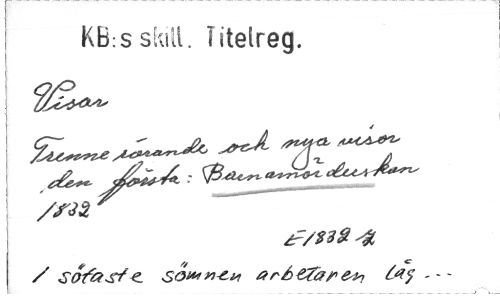 KB:s skill. Titelreg.
Visor
Trenne rörande och nya visor
den första: Barnamörderskan
1832
E1832 z
I sötaste sömnen arbetaren låg ...